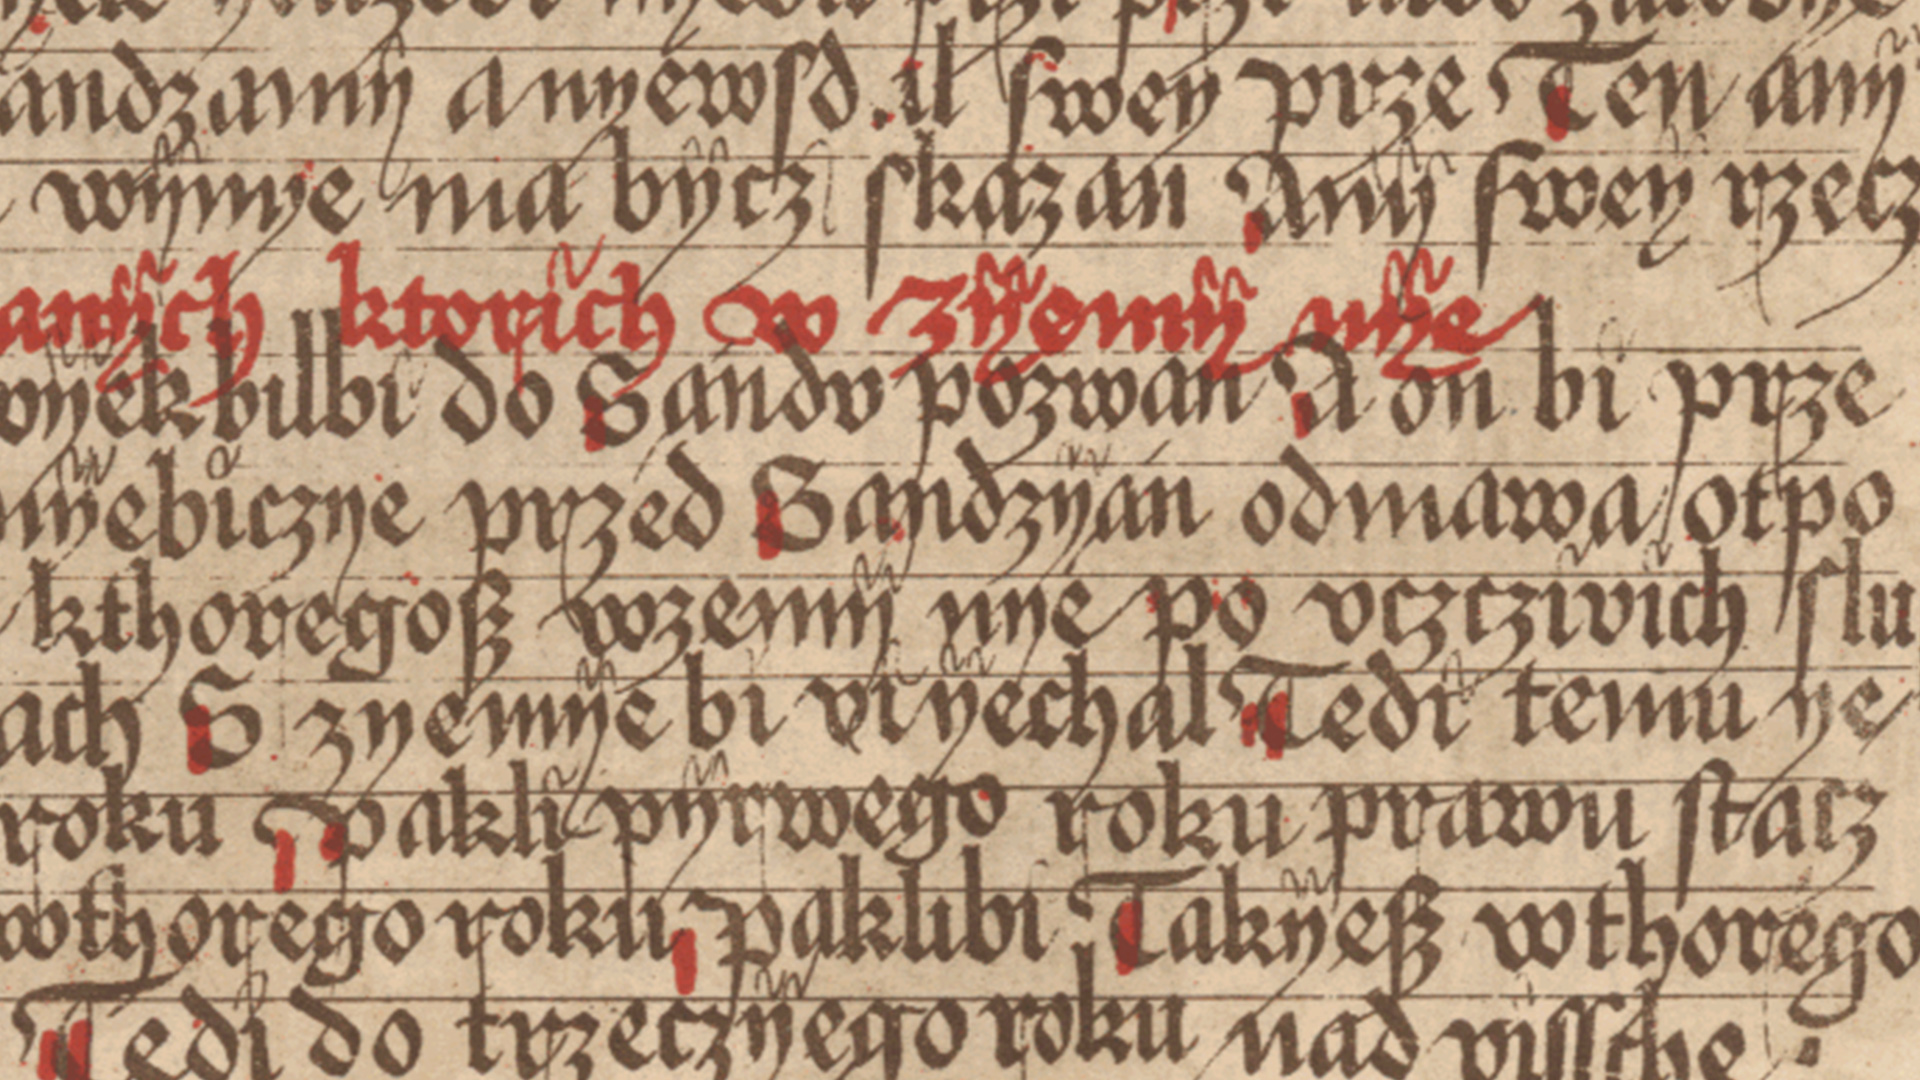 andzamy a nyewsd.il swey prze Ten any
wÿnnÿe ma bÿcz skazan Anÿ swey rzecz
anÿch ktorich w Zÿemÿ nÿe
wÿek bilbi do Sandv pozwan A on bi prze
nÿebiczne przed Sandzÿan odmawa otpo
kthoregosz wzemÿ nÿe po vcztziwich slu
ach S zyemÿe bi vÿyechal Tedi temu ye
roku pakli pÿrwego roku prawu stacz
wthorego roku paklibi Taknÿesz wthorego
Tedi do trzeczÿego roku nad vissche